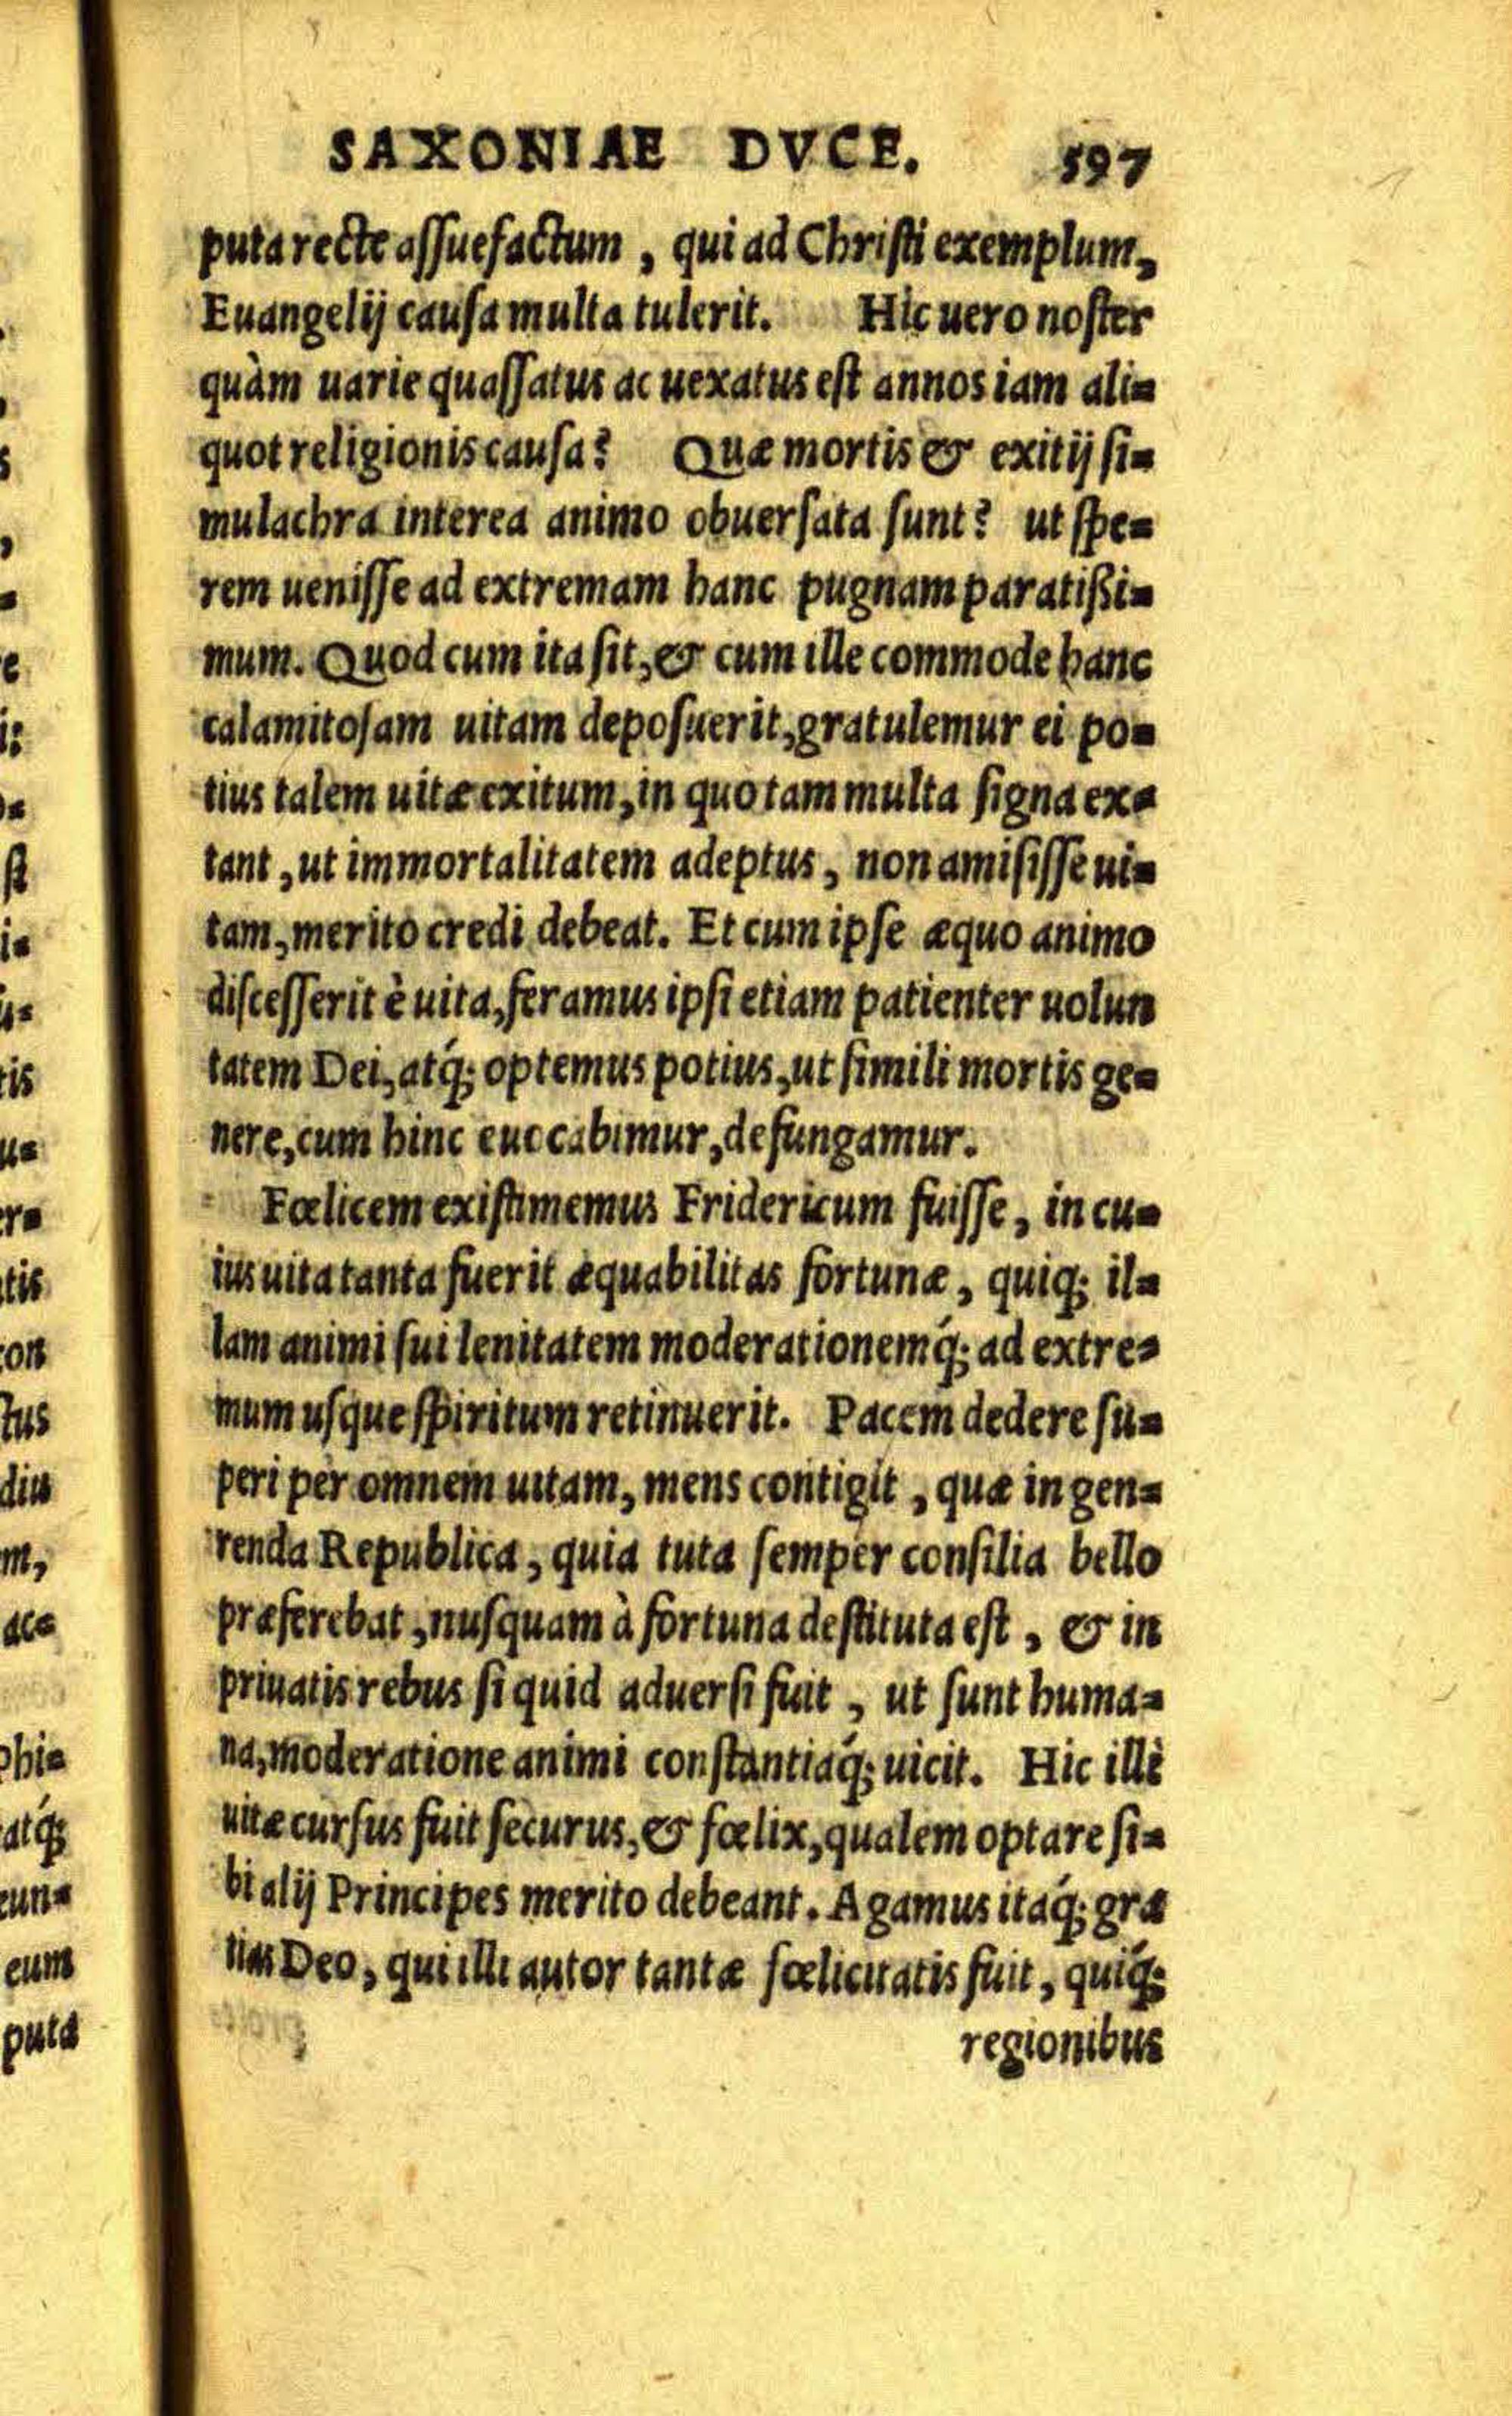 SAXONIAE DVCE. 597
puta recte assuefactum, qui ad Christi exemplum,
Euangelij causa multa tulerit. Hic uero noster
quàm uarie quassatus ac uexatus est annos iam ali-
quot religionis causa? Quæ mortis & exitij si-
mulachra interea animo obuersata sunt? ut spe-
rem uenisse ad extremam hanc pugnam paratißi-
mum. Quod cum ita sit, & cum ille commode hanc
calamitosam uitam deposuerit, gratulemur ei po-
tius talem uitæ exitum, in quo tam multa signa ex-
tant, ut immortalitatem adeptus, non amisisse ui-
tam, merito credi debeat. Et cum ipse æquo animo
discesserit è uita, feramus ipsi etiam patienter uolun
tatem Dei, atq́; optemus potius, ut simili mortis ge-
nere, cum hinc euocabimur, defungamur.
Fœlicem existimemus Fridericum fuisse, in cu-
ius uita tanta fuerit æquabilitas fortunæ, quiq; il-
lam animi sui lenitatem moderationemq́; ad extre-
mum usque spiritum retinuerit. Pacem dedere su-
peri per omnem uitam, mens contigit, quæ in gen-
renda Republica, quia tuta semper consilia bello
præferebat, nusquam à fortuna destituta est, & in
priuatis rebus si quid aduersi fuit, ut sunt huma-
na, moderatione animi constantiaq́; uicit. Hic illi
uitæ cursus fuit securus, & fœlix, qualem optare si-
bi alij Principes merito debeant. Agamus itaq́; gra
tias Deo, qui illi autor tantæ fœlicitatis fuit, quiq́;
regionibus